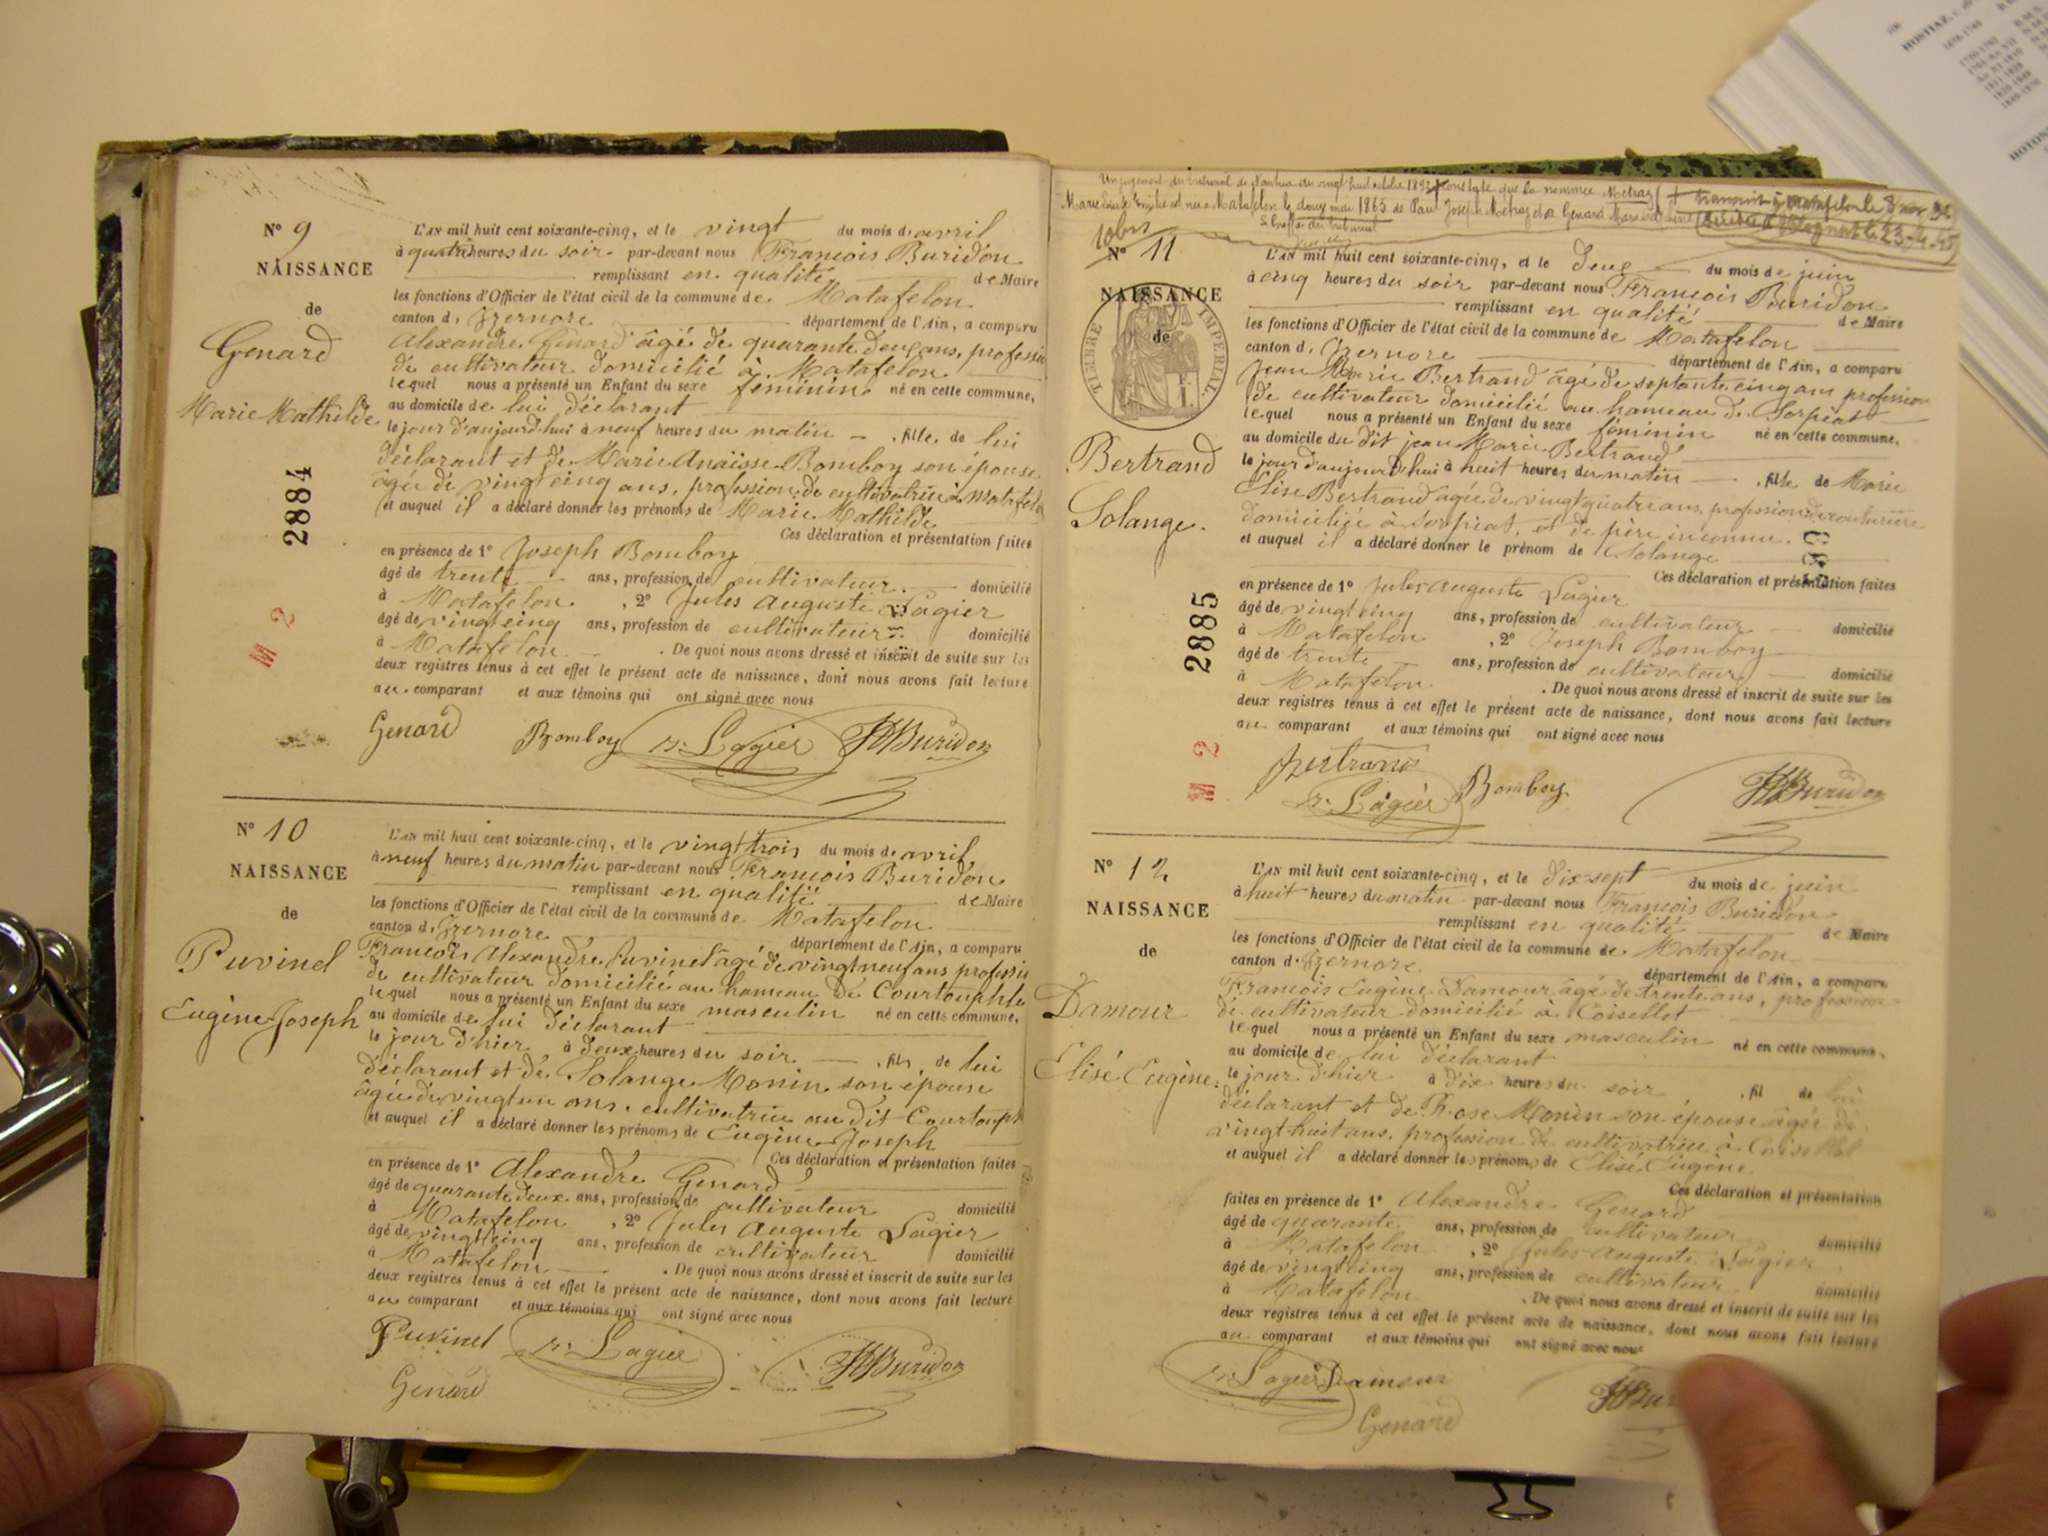 Nº 9
NAISSANCE
de
Genard
Marie Mathilde
2884
M 2
L'AN mil huit cent soixante-cinq, et le vingt du mois d'avril
à quatre heures du soir par-devant nous François Buridon
remplissant en qualité de Maire
les fonctions d'Officier de l'état civil de la commune de Matafelon
canton d'Izernore département de l'Ain, a comparu
Alexandre Genard âgé de quarante deux ans, profession
de cultivateur domicilié à Matafelon
lequel nous a présenté un Enfant du sexe féminin né en cette commune,
au domicile de lui déclarant
le jour d'aujourd'hui à neuf heures du matin, fille de lui
déclarant et de Marie Anaïsse Bomboy son épouse
âgée de vingt cinq ans, profession de cultivatrice à Matafelon
et auquel il a déclaré donner les prénoms de Marie Mathilde
Ces déclaration et présentation faites
en présence de 1º Joseph Bomboy
âgé de trente ans, profession de cultivateur domicilié
à Matafelon, 2º Jules Auguste Lagier
âgé de vingt cinq ans, profession de cultivateur domicilié
à Matafelon. De quoi nous avons dressé et inscrit de suite sur les
deux registres tenus à cet effet le présent acte de naissance, dont nous avons fait lecture
au comparant et aux témoins qui ont signé avec nous
Genard Bomboy Lagier Buridon
Nº 10
NAISSANCE
de
Puvinel
Eugène Joseph
L'AN mil huit cent soixante-cinq, et le vingt trois du mois d'avril
à neuf heures du matin par-devant nous François Buridon
remplissant en qualité de Maire
les fonctions d'Officier de l'état civil de la commune de Matafelon
canton d'Izernore département de l'Ain, a comparu
François Alexandre Puvinel âgé de vingt neuf ans profession
de cultivateur domicilié au hameau de Courtouphle
lequel nous a présenté un Enfant du sexe masculin né en cette commune,
au domicile de lui déclarant
le jour d'hier à deux heures du soir, fils de lui
déclarant et de Solange Monin son épouse
âgée de vingt un ans, cultivatrice au dit Courtouphle
et auquel il a déclaré donner les prénoms de Eugène Joseph
Ces déclaration et présentation faites
en présence de 1º Alexandre Genard
âgé de quarante deux ans, profession de cultivateur domicilié
à Matafelon, 2º Jules Auguste Lagier
âgé de vingt cinq ans, profession de cultivateur domicilié
à Matafelon. De quoi nous avons dressé et inscrit de suite sur les
deux registres tenus à cet effet le présent acte de naissance, dont nous avons fait lecture
au comparant et aux témoins qui ont signé avec nous
Puvinel Lagier Buridon
Genard
Un jugement du tribunal de Nantua du vingt huit octobre 1892 constate que la nommée Métraz
est née à Matafelon le douze mai 1865 de Paul Joseph Métraz et de Genard
Le Greffier du tribunal
10 bis
Nº 11
NAISSANCE
de
TIMBRE IMPERIAL
Bertrand
Solange.
2885
M 2
L'AN mil huit cent soixante-cinq, et le deux du mois de juin
à cinq heures du soir par-devant nous François Buridon
remplissant en qualité de Maire
les fonctions d'Officier de l'état civil de la commune de Matafelon
canton d'Izernore département de l'Ain, a comparu
Jean Marie Bertrand âgé de septante cinq ans profession
de cultivateur domicilié au hameau de Sorpiat
lequel nous a présenté un Enfant du sexe féminin né en cette commune,
au domicile du dit jean Marie Bertrand
le jour d'aujourd'hui à huit heures du matin, fille de Marie
Elise Bertrand âgée de vingt quatre ans, profession de couturière
domiciliée à Sorpiat, et de père inconnu.
et auquel il a déclaré donner le prénom de Solange
Ces déclaration et présentation faites
en présence de 1º Jules Auguste Lagier
âgé de vingt cinq ans, profession de cultivateur domicilié
à Matafelon, 2º Joseph Bomboy
âgé de trente ans, profession de cultivateur domicilié
à Matafelon. De quoi nous avons dressé et inscrit de suite sur les
deux registres tenus à cet effet le présent acte de naissance, dont nous avons fait lecture
au comparant et aux témoins qui ont signé avec nous
Bertrand Lagier Bomboy Buridon
Nº 12
NAISSANCE
de
Damour
Elisé Eugène.
L'AN mil huit cent soixante-cinq, et le dix sept du mois de juin
à huit heures du matin par-devant nous François Buridon
remplissant en qualité de Maire
les fonctions d'Officier de l'état civil de la commune de Matafelon
canton d'Izernore département de l'Ain, a comparu
François Eugène Damour âgé de trente ans, profession
de cultivateur domicilié à Coisellet
lequel nous a présenté un Enfant du sexe masculin né en cette commune,
au domicile de lui déclarant
le jour d'hier à dix heures du soir, fil de lui
déclarant et de Rose Monin son épouse âgée de
vingt huit ans, profession de cultivatrice à Coisellet
et auquel il a déclaré donner les prénoms de Elisé Eugène
Ces déclaration et présentation
faites en présence de 1º Alexandre Genard
âgé de quarante ans, profession de cultivateur domicilié
à Matafelon, 2º Jules Auguste Lagier
âgé de vingt cinq ans, profession de cultivateur domicilié
à Matafelon. De quoi nous avons dressé et inscrit de suite sur les
deux registres tenus à cet effet le présent acte de naissance, dont nous avons fait lecture
au comparant et aux témoins qui ont signé avec nous
Lagier Damour Buridon
Genard
HOSTIAZ